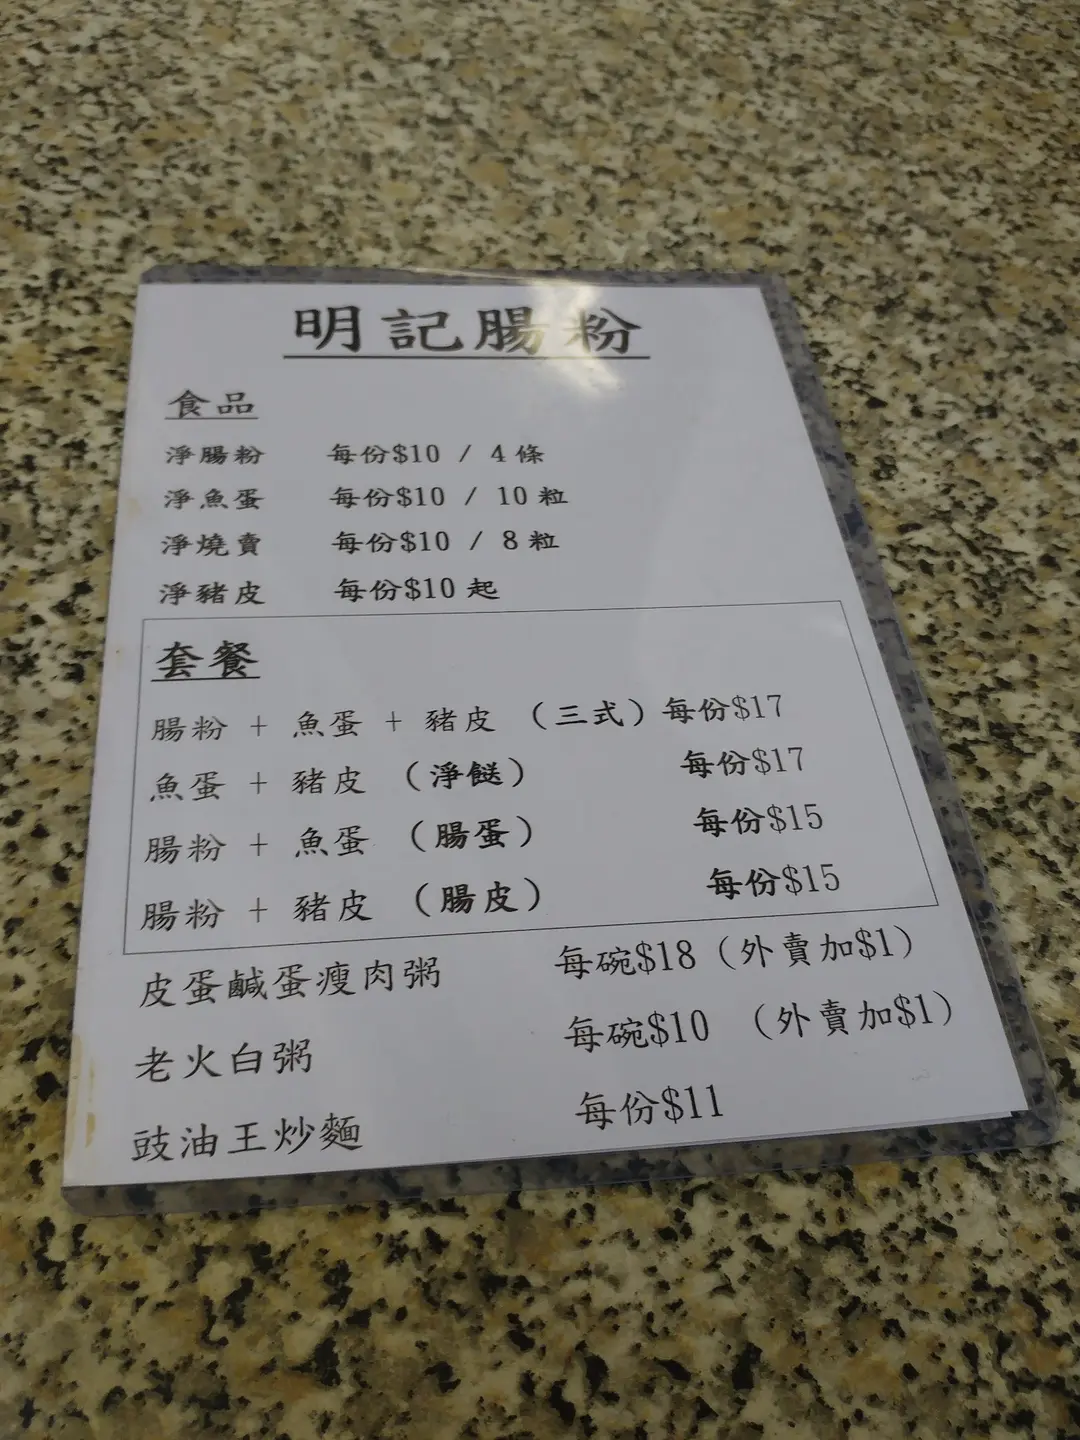 明記腸粉
食品
淨腸粉 每份$10 / 4 條
淨魚蛋 每份$10 / 10 粒
淨燒賣 每份$10 / 8 粒
淨豬皮 每份$10 起
套餐
腸粉 + 魚蛋 + 豬皮 (三式) 每份$17
魚蛋 + 豬皮 (淨餸) 每份$17
腸粉 + 魚蛋 (腸蛋) 每份$15
腸粉 + 豬皮 (腸皮) 每份$15
皮蛋鹹蛋瘦肉粥 每碗$18 (外賣加$1)
老火白粥 每碗$10 (外賣加$1)
豉油王炒麵 每份$11